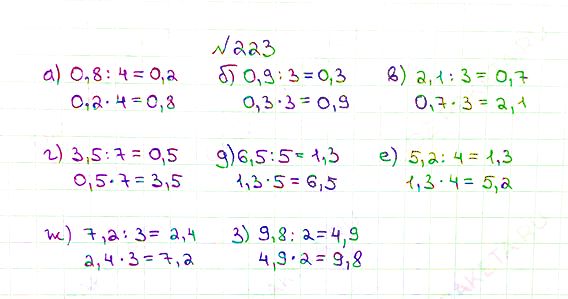 №223
а) 0,8 : 4 = 0,2 б) 0,9 : 3 = 0,3 в) 2,1 : 3 = 0,7
0,2 · 4 = 0,8 0,3 · 3 = 0,9 0,7 · 3 = 2,1
г) 3,5 : 7 = 0,5 д) 6,5 : 5 = 1,3 е) 5,2 : 4 = 1,3
0,5 · 7 = 3,5 1,3 · 5 = 6,5 1,3 · 4 = 5,2
ж) 7,2 : 3 = 2,4 з) 9,8 : 2 = 4,9
2,4 · 3 = 7,2 4,9 · 2 = 9,8